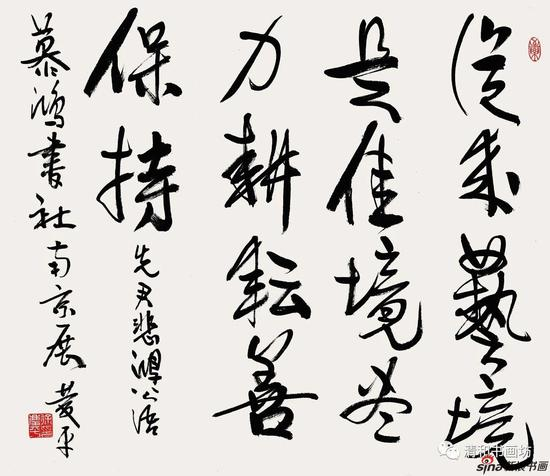 從来藝境
是佳境尽
力耕耘善
保持
先君悲鴻公语
慕鴻書社南京展 慶平
清和书画坊
sina新浪书画